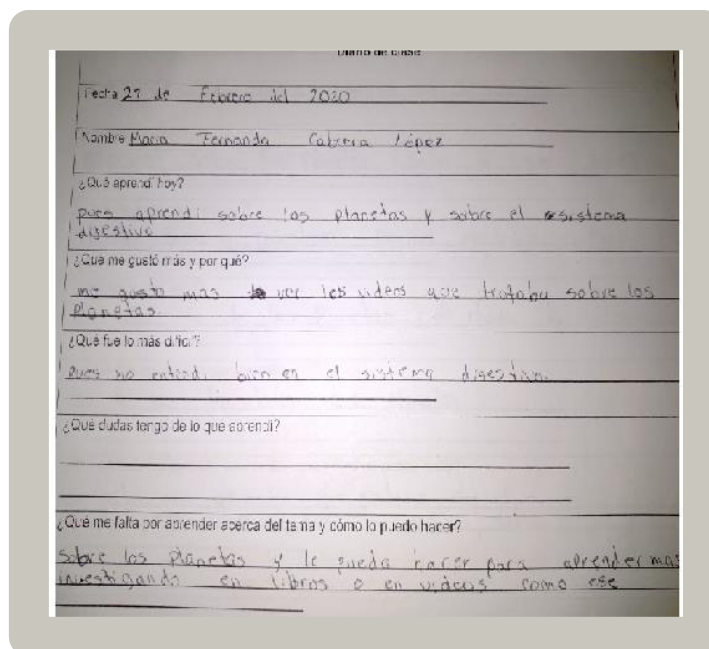 Diario de clase
Fecha 27 de Febrero del 2020
Nombre Maria Fernanda Cabrera López
¿Qué aprendí hoy?
pues aprendi sobre los planetas y sobre el sistema
digestivo
¿Qué me gustó más y por qué?
me gusto mas ver los videos que trataba sobre los
Planetas
¿Qué fue lo más difícil?
pues no entendi bien en el sistema digestivo.
¿Qué dudas tengo de lo que aprendí?
¿Qué me falta por aprender acerca del tema y cómo lo puedo hacer?
Sobre los planetas y lo puedo hacer para aprender mas
investigando en libros o en videos como ese